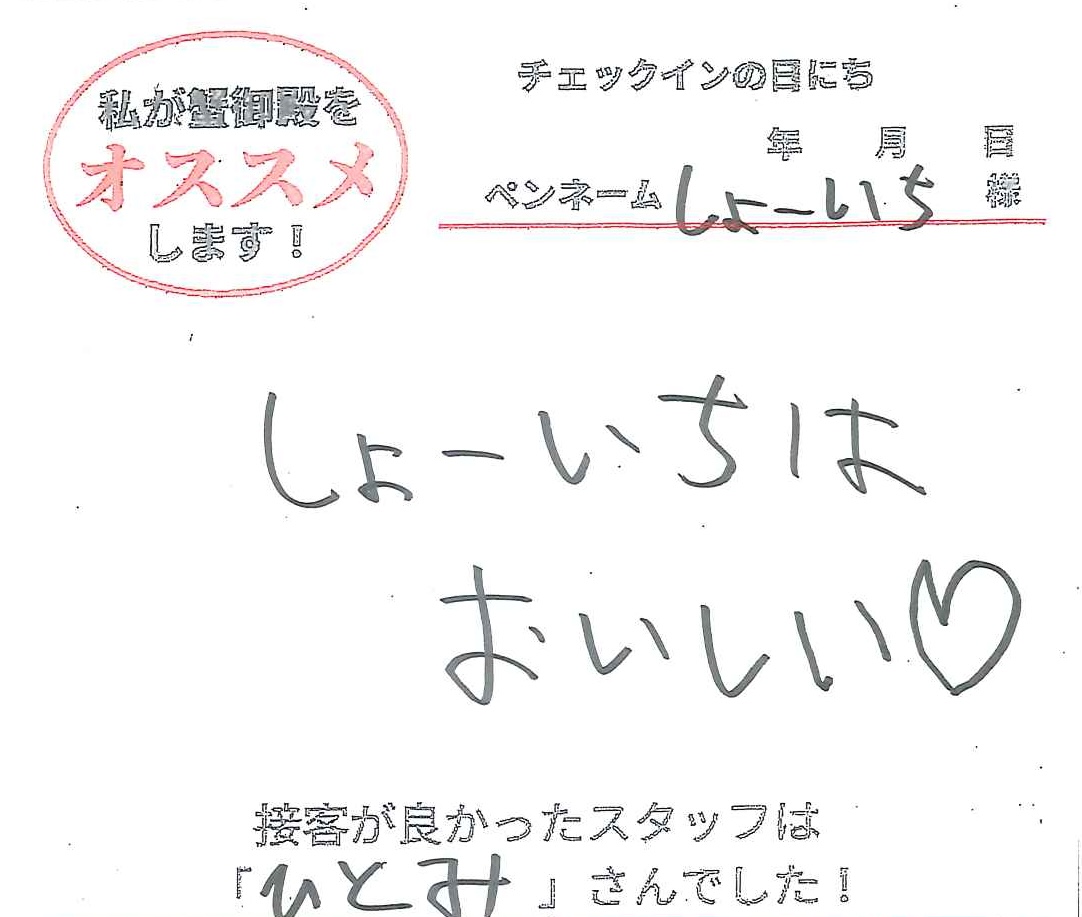 私が蟹御殿を
オススメ
します！
チェックインの日にち
年 月 日
ペンネーム しょーいち 様
しょーいちは
おいしい♡
接客が良かったスタッフは
「ひとみ」さんでした！